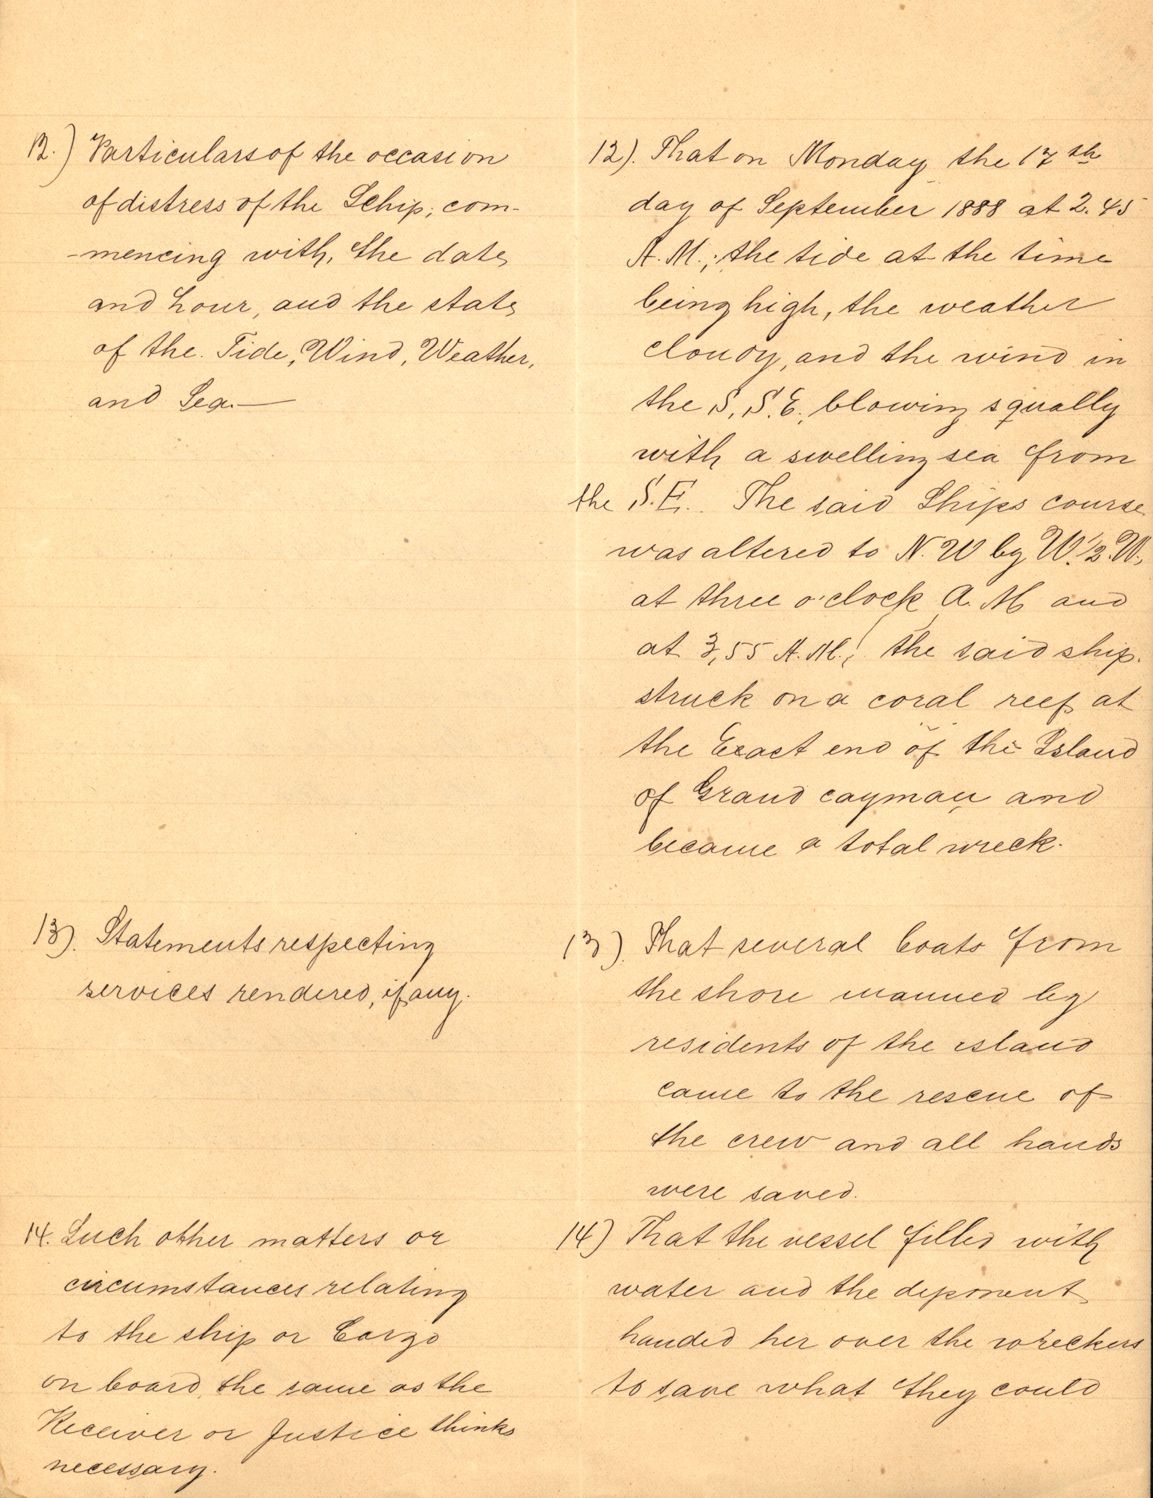 12.) Particulars of the occasion
of distress of the Schip, com-
-mencing with, the date
and hour, and the state
of the Tide, Wind, Weather,
and Sea.—
12). That on Monday the 17th
day of September 1888 at 2.45
A.M.; the tide at the time
being high, the weather
cloudy, and the wind in
the S.S.E. blowing squally
with a swelling sea from
the S.E. The said Ships course
was altered to N.W by W.1/2.W.,
at three o'clock A.M and
at 3,55 A.M., the said ship.
struck on a coral reef at
the Exact end of the Island
of Grand cayman and
became a total wreck.
13). Statements respecting
services rendered, if any.
13). That several boats from
the shore manned by
residents of the island
came to the rescue of
the crew and all hands
were saved.
14. Such other matters or
circumstances relating
to the ship or Cargo
on board the same as the
Receiver or Justice thinks
necessary.
14) That the vessel filled with
water and the deponent
handed her over the wreckers
to save what they could